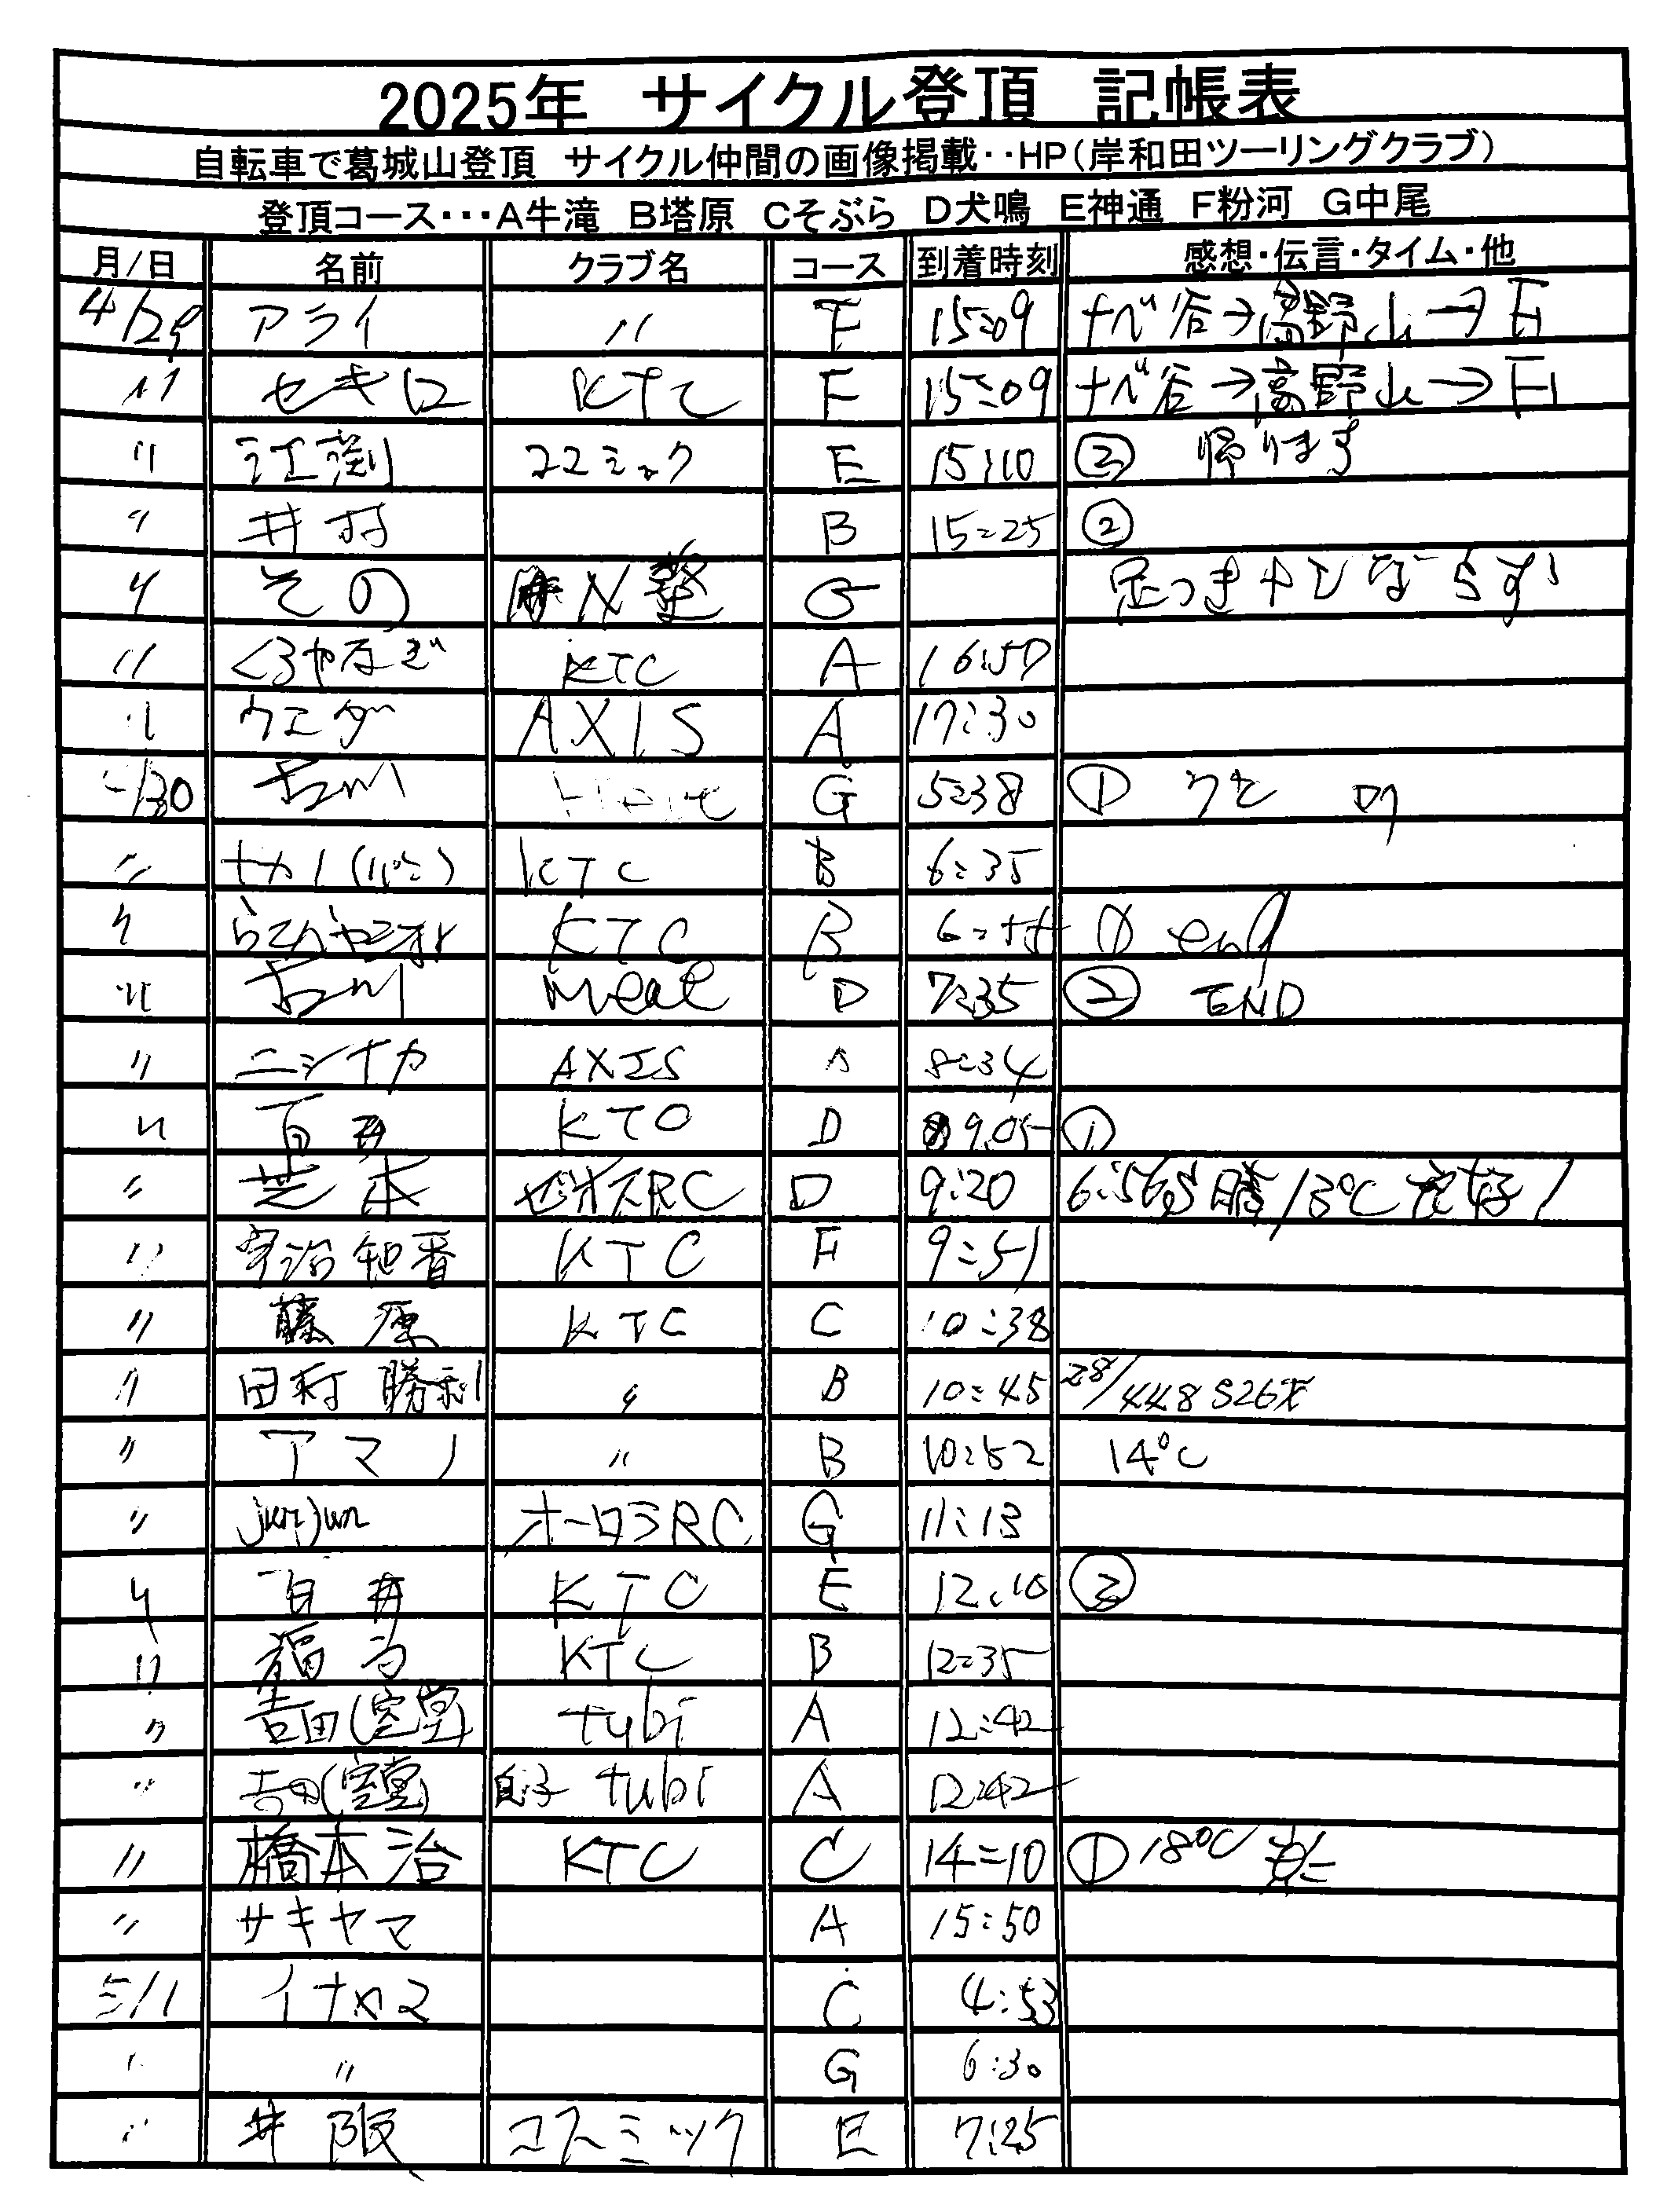 2025年 サイクル登頂 記帳表
自転車で葛城山登頂 サイクル仲間の画像掲載‥HP(岸和田ツーリングクラブ)
登頂コース・・・A牛滝 B塔原 Cそぶら D犬鳴 E神通 F粉河 G中尾
月/日 名前 クラブ名 コース 到着時刻 感想・伝言・タイム・他
4/29 アライ 〃 F 15:09 ナベ谷→高野山→F
〃 セキロ KTC F 15:09 ナベ谷→高野山→F
〃 江渕 コスミック E 15:10 ② 帰ります
〃 井村 B 15:25 ②
〃 その G 足つきヤむならず
〃 くろやなぎ KTC A 16:50
〃 ウエダ AXIS A 17:30
/30 古川 G 5:38 ① 7℃
〃 ナカノ KTC B 6:35
〃 KTC B ① end
〃 古川 Meat D 7:35 ② END
〃 ニシナカ AXIS A 8:34
〃 百井 KTC D 9:05 ①
〃 芝本 ゼオスRC D 9:20 13℃
〃 宇治知香 KTC F 9:51
〃 藤原 KTC C 10:38
〃 田村 勝利 〃 B 10:45 28/448
〃 アマノ 〃 B 10:52 14℃
〃 junjun オーロラRC G 11:13
〃 百井 KTC E 12:10 ②
〃 福 KTC B 12:35
〃 吉田(空堂) tubi A 12:42
〃 吉田(空堂) 息子 tubi A 12:42
〃 橋本治 KTC C 14:10 ① 18℃
〃 サキヤマ A 15:50
5/1 イナメマ C 4:53
〃 〃 G 6:30
〃 井阪 コスミック E 7:25